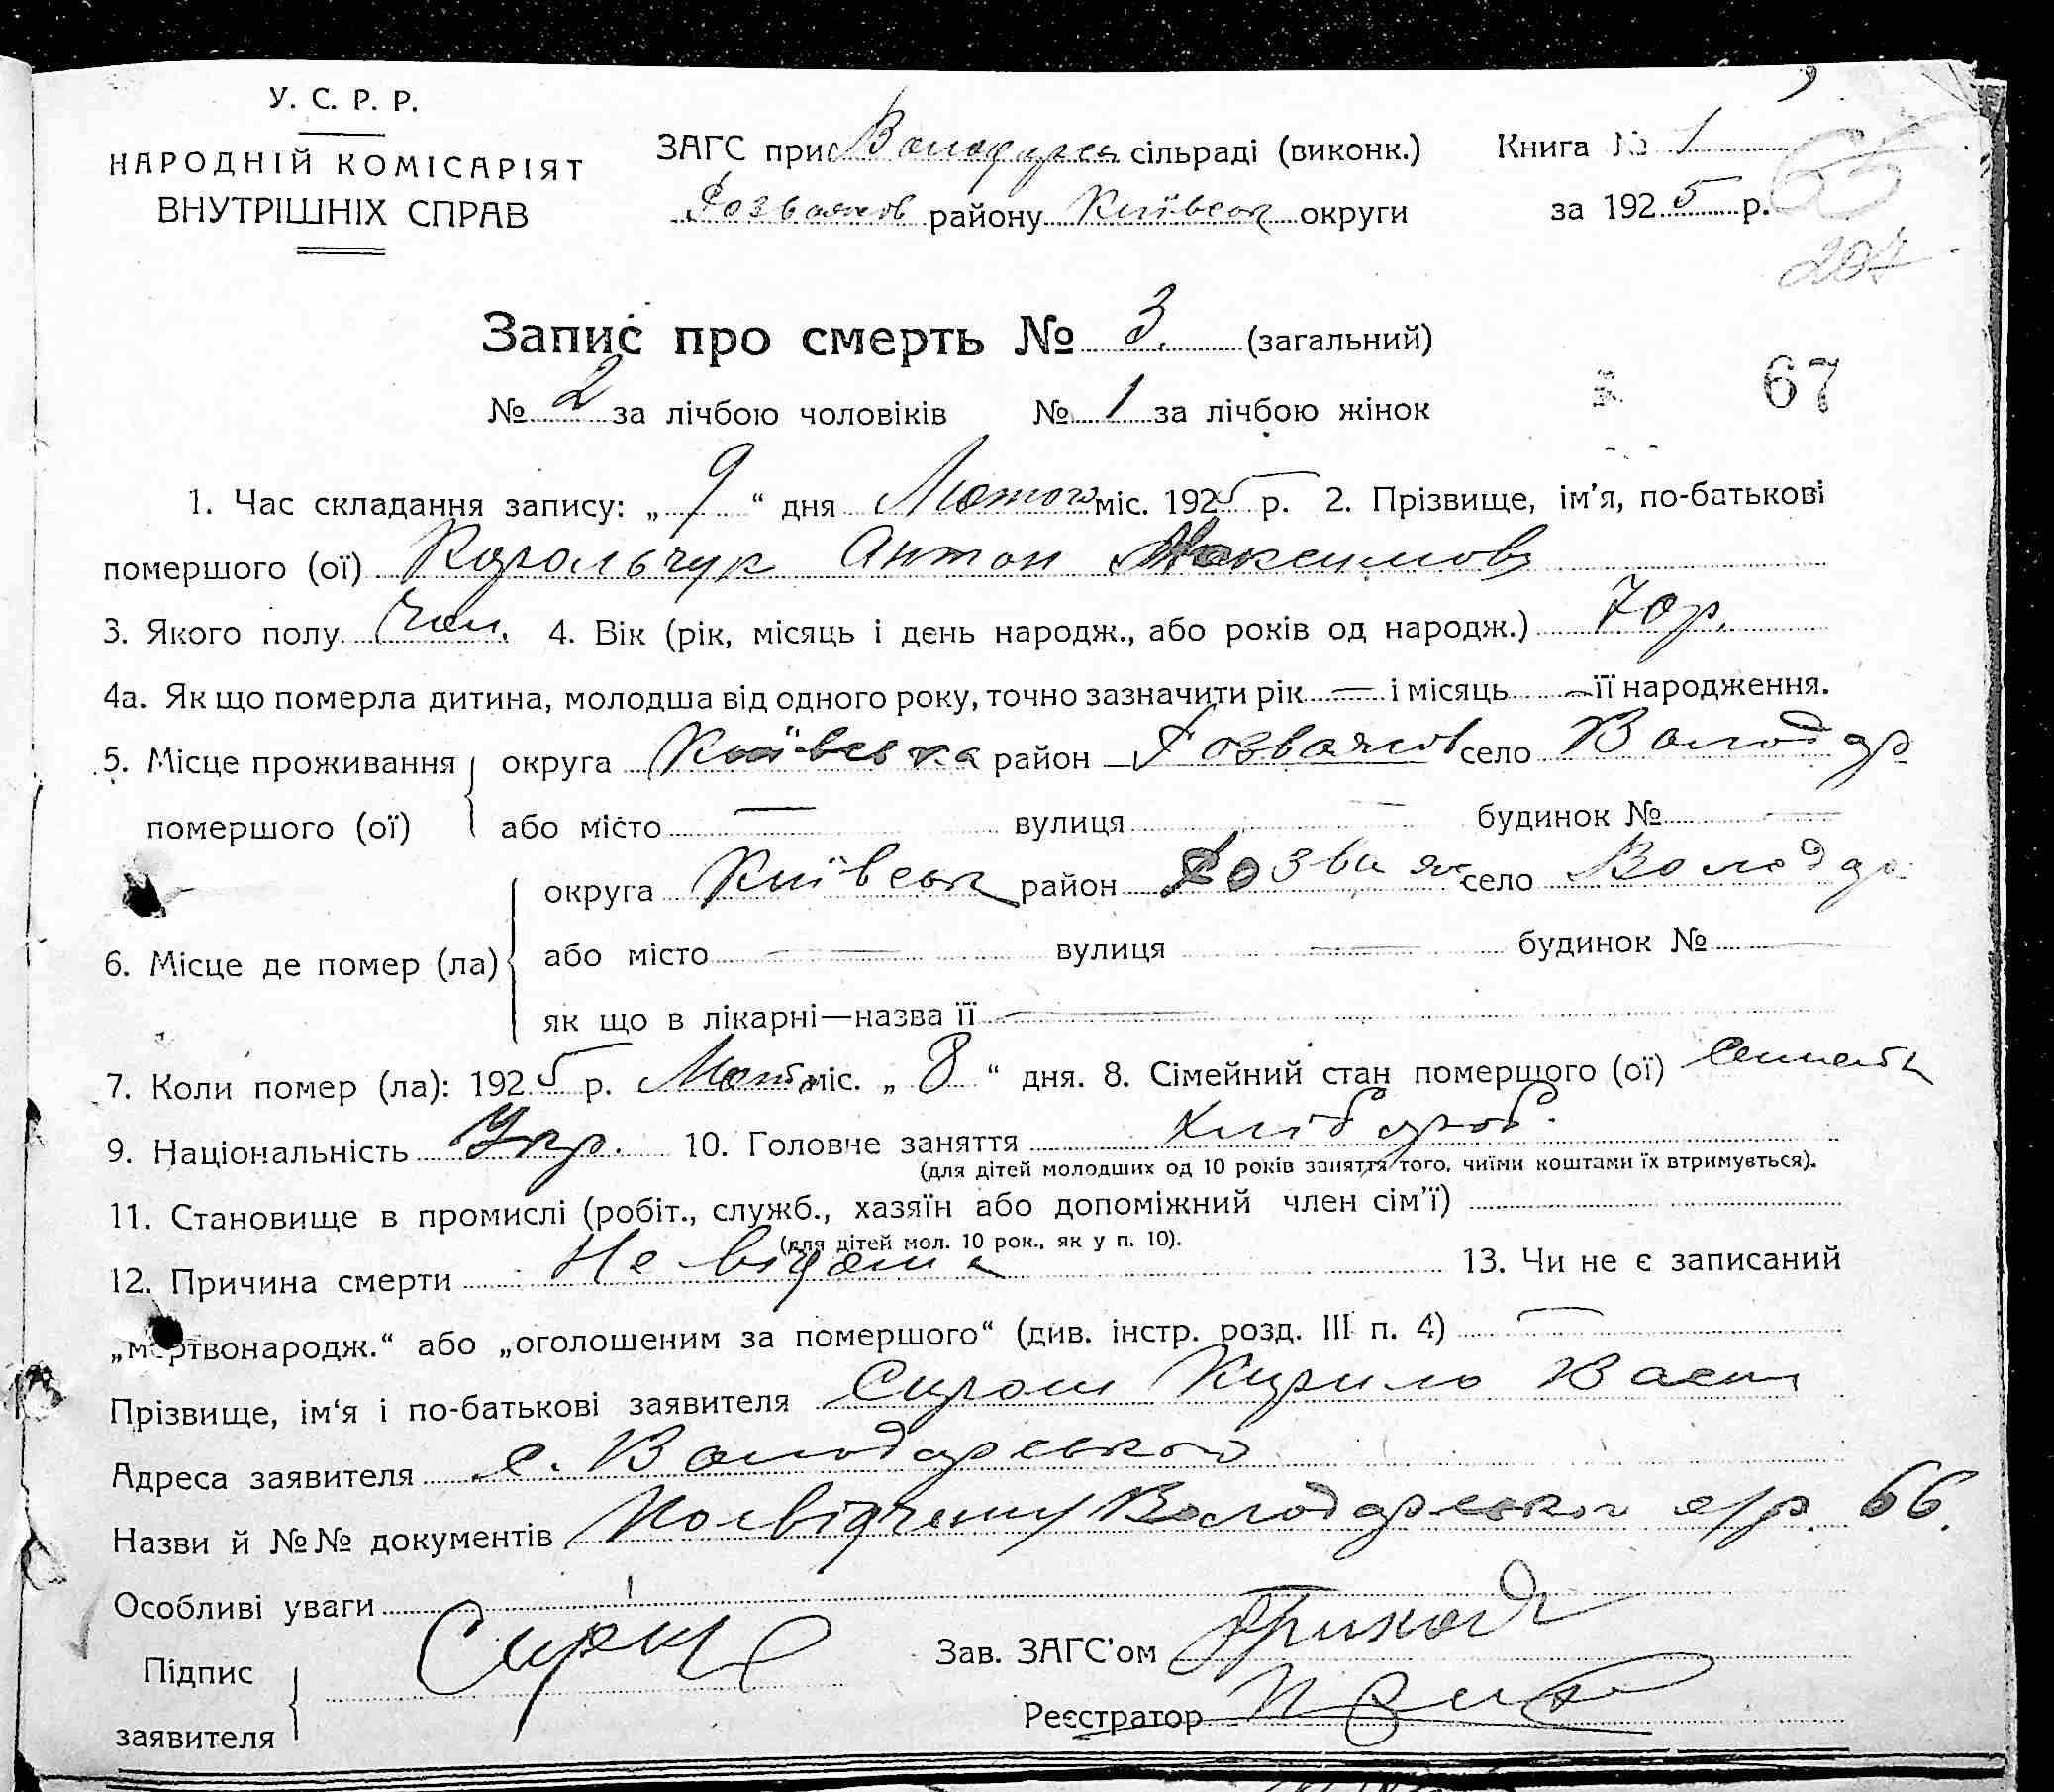 У. С. Р. Р.
НАРОДНІЙ КОМІСАРІЯТ
ВНУТРІШНІХ СПРАВ
ЗАГС при Володарсь сільраді (виконк.)
Розважов району Київськ округи
Книга № 1
за 1925 р.
65
207
Запис про смерть № 3. (загальний)
№ 2 за лічбою чоловіків № 1 за лічбою жінок
67
1. Час складання запису: „ 9 “ дня Лютого міс. 1925 р. 2. Прізвище, ім’я, по-батькові
помершого (ої) Корольчук Антон Максимов
3. Якого полу Чол. 4. Вік (рік, місяць і день народж., або років од народж.) 70 р.
4а. Як що померла дитина, молодша від одного року, точно зазначити рік — і місяць — її народження.
5. Місце проживання помершого (ої) округа Київська район Розважов село Володар
або місто — вулиця — будинок № —
6. Місце де помер (ла) округа Київськ район Розваж село Володар
або місто — вулиця — будинок № —
як що в лікарні—назва її —
7. Коли помер (ла): 1925 р. Лют міс. „ 8 “ дня. 8. Сімейний стан помершого (ої)
9. Національність Укр. 10. Головне заняття хлібороб.
(для дітей молодших од 10 років заняття того, чиїми коштами їх втримується).
11. Становище в промислі (робіт., служб., хазяїн або допоміжний член сім’ї)
(для дітей мол. 10 рок., як у п. 10).
12. Причина смерти Не відома 13. Чи не є записаний
„мертвонародж.“ або „оголошеним за помершого“ (див. інстр. розд. III п. 4) —
Прізвище, ім‘я і по-батькові заявителя Кирило Васил
Адреса заявителя с. Володарської
Назви й №№ документів Посвідчення Володарської с/р. 66.
Особливі уваги
Підпис
заявителя
Зав. ЗАГС’ом Приход
Реєстратор